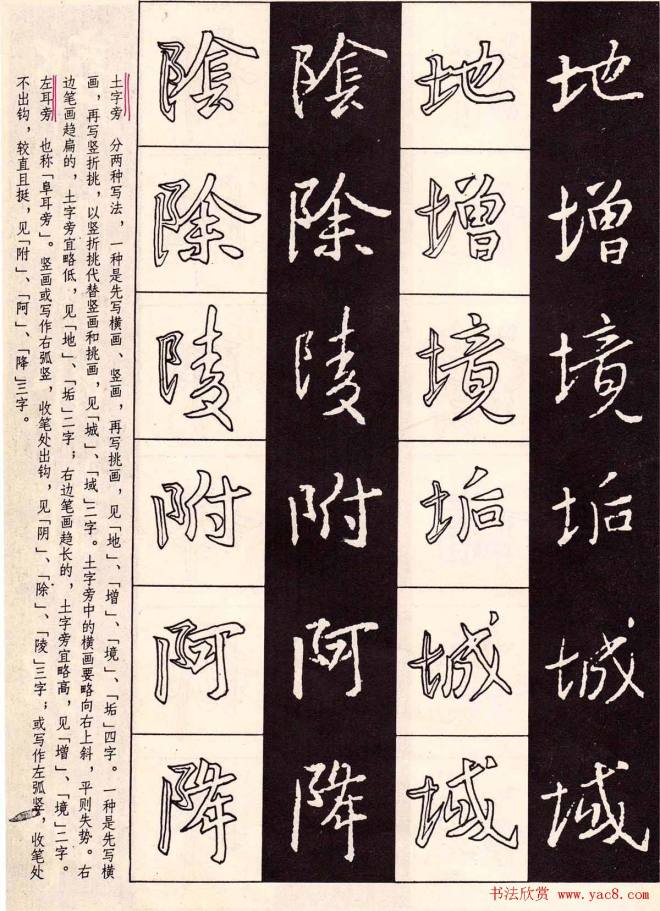 地增境垢城域
地增境垢城域
陰除陵附阿降
陰除陵附阿降
土字旁　分两种写法，一种是先写横画、竖画，再写挑画，见「地」、「增」、「境」、「垢」四字。一种是先写横
画，再写竖折挑，以竖折挑代替竖画和挑画，见「城」、「域」二字。土字旁中的横画要略向右上斜，平则失势。右
边笔画趋扁的，土字旁宜略低，见「地」、「垢」二字；右边笔画趋长的，土字旁宜略高，见「增」、「境」二字。
左耳旁　也称「阜耳旁」。竖画或写作右弧竖，收笔处出钩，见「阴」、「除」、「陵」三字；或写作左弧竖，收笔处
不出钩，较直且挺，见「附」、「阿」、「降」三字。
书法欣赏 www.yac8.com